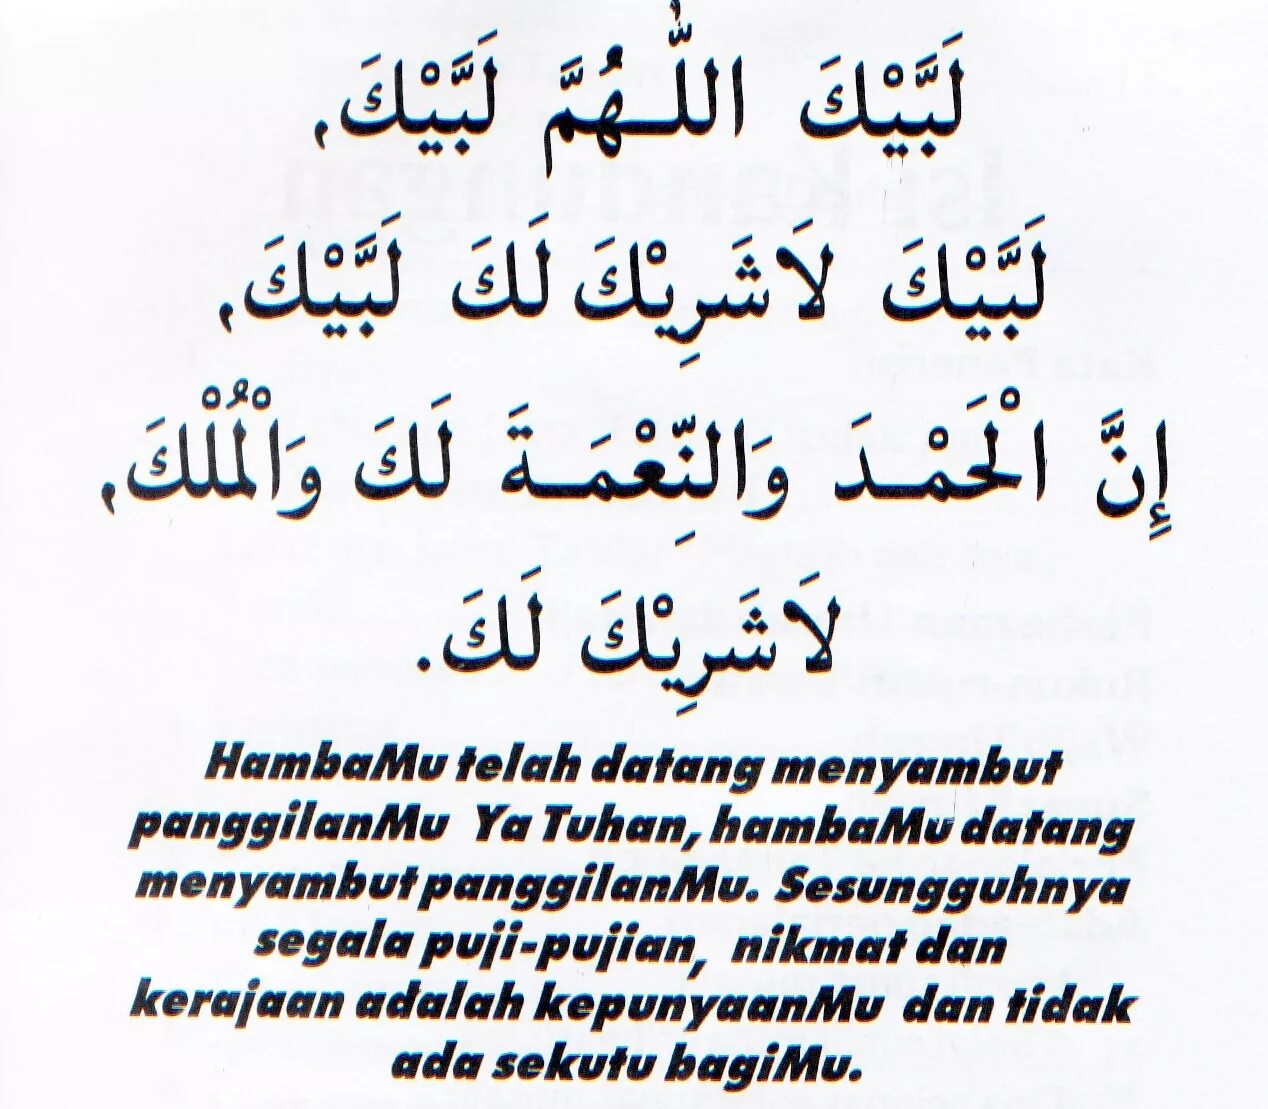 لَبَّيْكَ اللّٰهُمَّ لَبَّيْكَ,
لَبَّيْكَ لَا شَرِيْكَ لَكَ لَبَّيْكَ,
إِنَّ الْحَمْدَ وَالنِّعْمَةَ لَكَ وَالْمُلْكَ,
لَا شَرِيْكَ لَكَ.
HambaMu telah datang menyambut
panggilanMu Ya Tuhan, hambaMu datang
menyambut panggilanMu. Sesungguhnya
segala puji-pujian, nikmat dan
kerajaan adalah kepunyaanMu dan tidak
ada sekutu bagiMu.